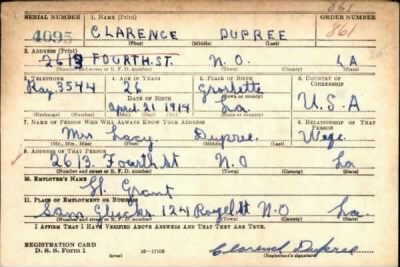 861
SERIAL NUMBER 1. NAME (Print) ORDER NUMBER
4095 CLARENCE DUPREE 861
(First) (Middle) (Last)
2. ADDRESS (Print)
2613 FOURTH ST. N.O. LA
(Number and street or R. F. D. number) (Town) (County) (State)
3. TELEPHONE 4. AGE IN YEARS 5. PLACE OF BIRTH 6. COUNTRY OF CITIZENSHIP
Ray 3544 26
DATE OF BIRTH (Town or county)
April 21 1914 La. U.S.A
(Exchange) (No.) (Mo.) (Day) (Yr.) (State or country)
7. NAME OF PERSON WHO WILL ALWAYS KNOW YOUR ADDRESS 8. RELATIONSHIP OF THAT PERSON
Mrs Lacy Dupree. Wife.
(Mr., Mrs., Miss) (First) (Middle) (Last)
9. ADDRESS OF THAT PERSON
2613. Fourth St N.O La
(Number and street or R. F. D. number) (Town) (County) (State)
10. EMPLOYER'S NAME
Grant
11. PLACE OF EMPLOYMENT OR BUSINESS
Sam 124 Royal St N.O La.
(Number and street or R. F. D. number) (Town) (County) (State)
I AFFIRM THAT I HAVE VERIFIED ABOVE ANSWERS AND THAT THEY ARE TRUE.
REGISTRATION CARD
D. S. S. Form 1 (over) Clarence Dupree
(Registrant's signature)